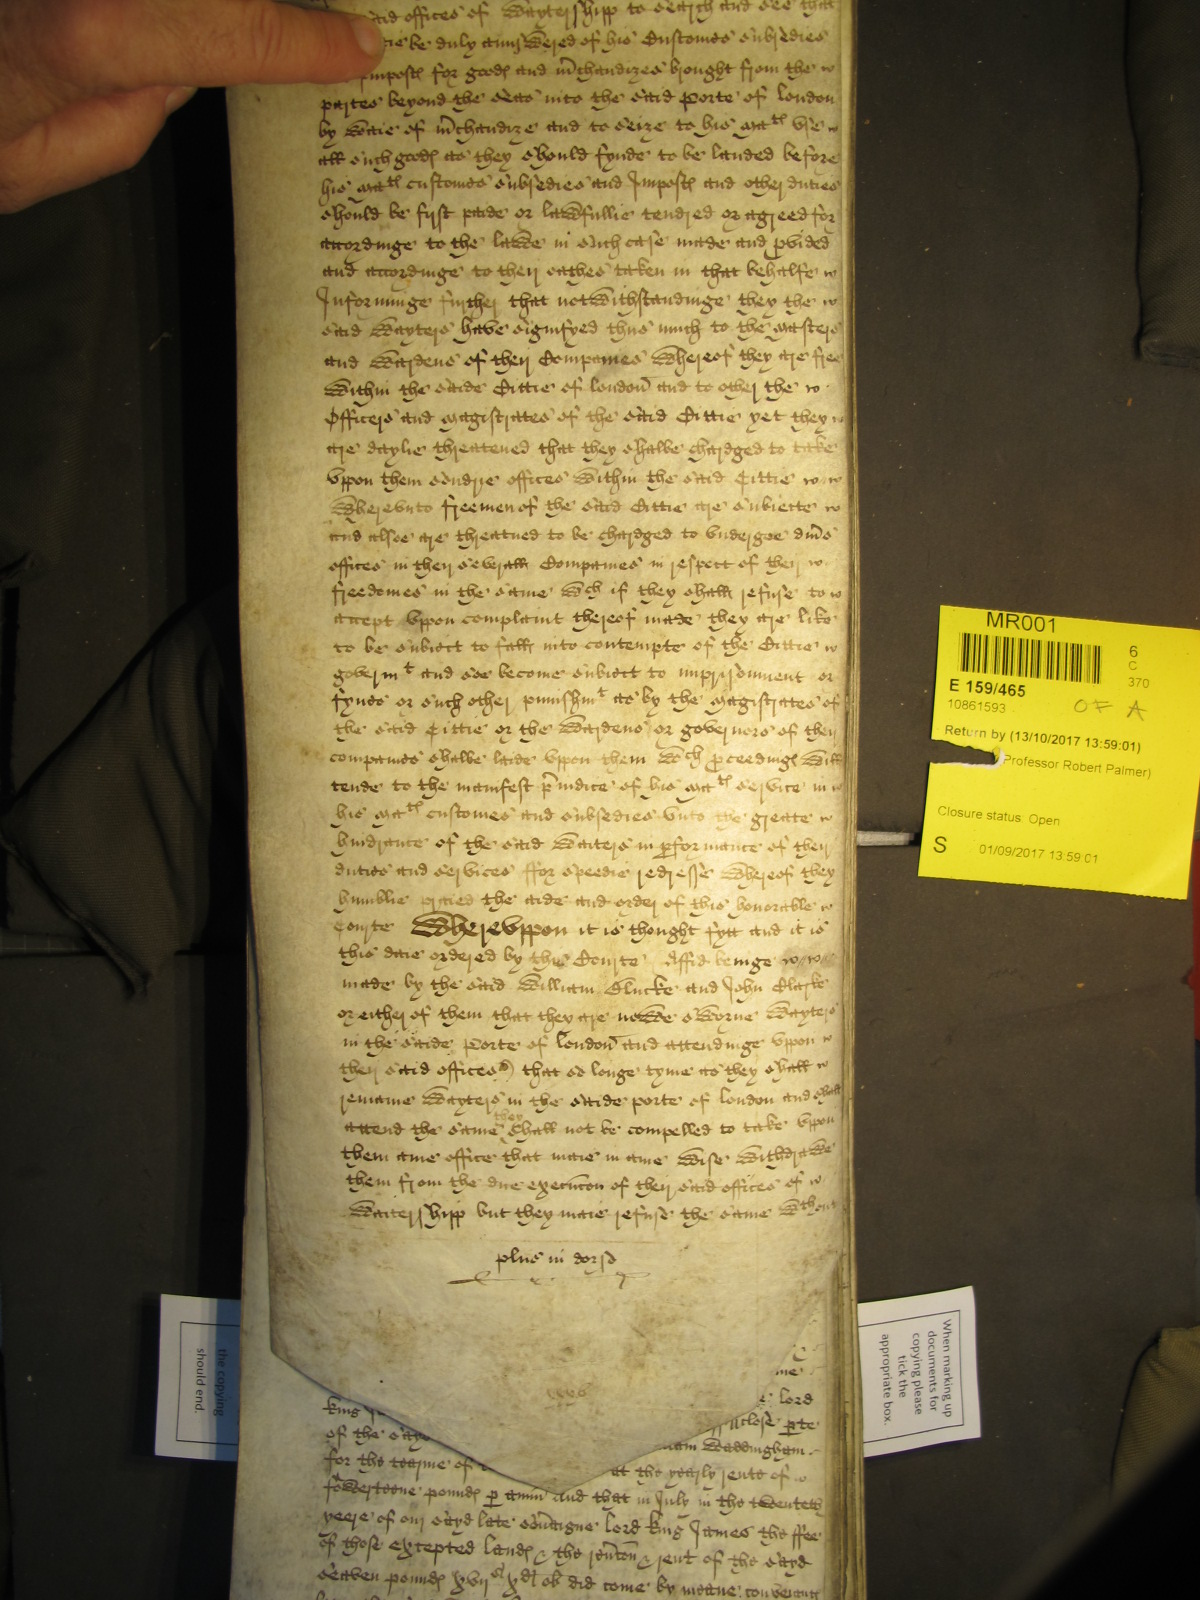 said offices of Waytershipp to search and see that
be duly aunswered of his Customes subsedies
Impostℓ for goodℓ and m̃chandizes brought from the
partes beyond the Seas into the said Porte of London
by Waie of m̃chandize and to seize to his Matℓ vse
all such goodℓ as they should fynde to be landed before
his Matℓ customes subsedies and Impostℓ and other duties
should be fyrst paide or lawfullie tendred or agreed for
accordinge to the lawe in such case made and pvided
and accordinge to their oathes taken in that behalfe
Informinge further that notwithstandinge they the
said Wayters have signifyed thus much to the Masters
and Wardens of their Companies Whereof they are free
Within the saide Cittie of London and to other the
Officers and Magistrates of the said Cittie yet they
are daylie threatened that they shalbe chardged to take
vppon them sondrie offices Within the said Cittie
Wherevnto freemen of the said Cittie are subiecte
and alsoe are threatned to be chardged to vndergoe divs
offices in their severall Companies in respect of their
freedomes in the same Wch if they shall refuse to
accept vppon complaint thereof made they are like
to be subiect to fall into contempte of the Cittie
governmt and soe become subiect to imprisonment or
fynes or such other punishmt as by the Magistrates of
the said Cittie or the Wardens or governors of their
companies shalbe laide vppon them Wch pceedingℓ Will
tende to the manifest piudice of his Matℓ service in
his Matℓ customes and subsedies vnto the greate
hindrance of the said Waiters in pformance of their
duties and services ffor speedie redresse Whereof they
humblie praied the aide and order of this honorable
Courte Wherevppon it is thought fytt and it is
this daie ordered by this Courte Affid beinge
made by the said William Clucke and John Clarke
or either of them that they are nowe sworne Wayters
in the saide Porte of London and attendinge vppon
their said offices) that so longe tyme as they shall
remaine Wayters in the saide porte of London and shall
attend the same they shall not be compelled to take vppon
them anie office that maie in anie Wise Withdrawe
them from the due execucon of their said offices of
Waitershipp but they maie refuse the same Wthout
plus in dorso
me
lord
king close pte
of the sayd Waddingham
for the tearme of at the yearly rente of
fowerteene poundℓ p annu and that in July in the twenteth
yeere of our sayd late soveraigne lord king James the ffee
of those excepted landℓ & the revcon & rent of the sayd
seaven poundℓ xvijs xd ob did come by meane conveyanc
MR001
6
C
370
E 159/465
10861593
OF A
Return by (13/10/2017 13:59:01)
Professor Robert Palmer)
Closure status Open
S 01/09/2017 13:59:01
the copying
should end.
When marking up
documents for
copying please
tick the
appropriate box.